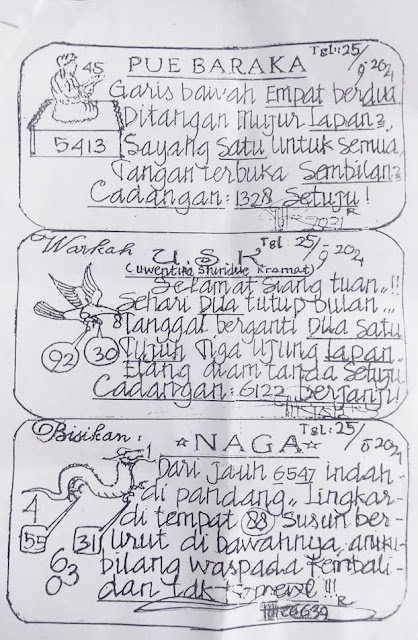 PUE BARAKA
Tgl: 25/9-2021
45
5413
Garis bawah Empat berdua
Ditangan Mujur Lapan3
Sayang Satu Untuk Semua
Tangan terbuka Sembilan2
Cadangan: 1328 Setuju!
R
Warkah
U.S.K
Tgl: 25/9-2021
(Uwentira Sriunduk Kramat)
Selamat Siang tuan..!!
Sehari Dua tutup bulan...
8
Tanggal berganti Dua Satu
92
30
Tujuh Tiga Ujung Lapan
Elang diam tanda Setuju
Cadangan: 6122 berjanji
Bisikan:
☆NAGA☆
Tgl: 25/9-2021
1
Dari jauh 6547 indah-
di pandang,, Lingkar-
4
di tempat 88 Susun ber-
55
31
urut di bawahnya, angka
bilang waspada Kembali-
6
03
dan tak
!!!
639
R